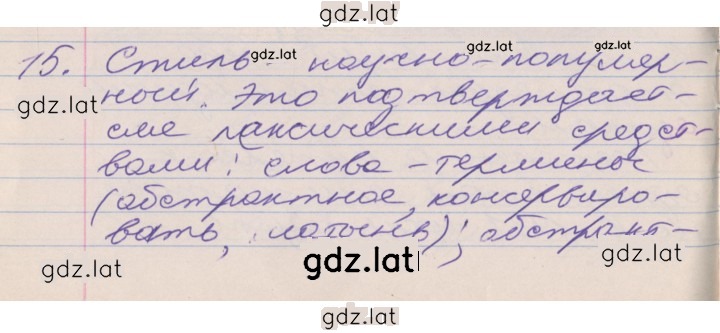 gdz.lat
15. Стиль gdz.lat научно-популяр- gdz.lat
gdz.lat ный. Это подтверждает- gdz.lat
ся лексическими средст-
вами: слова-термины
(абстрактное, консерviro-
вать, латынь); абстракт-
gdz.lat gdz.lat gdz.lat
gdz.lat